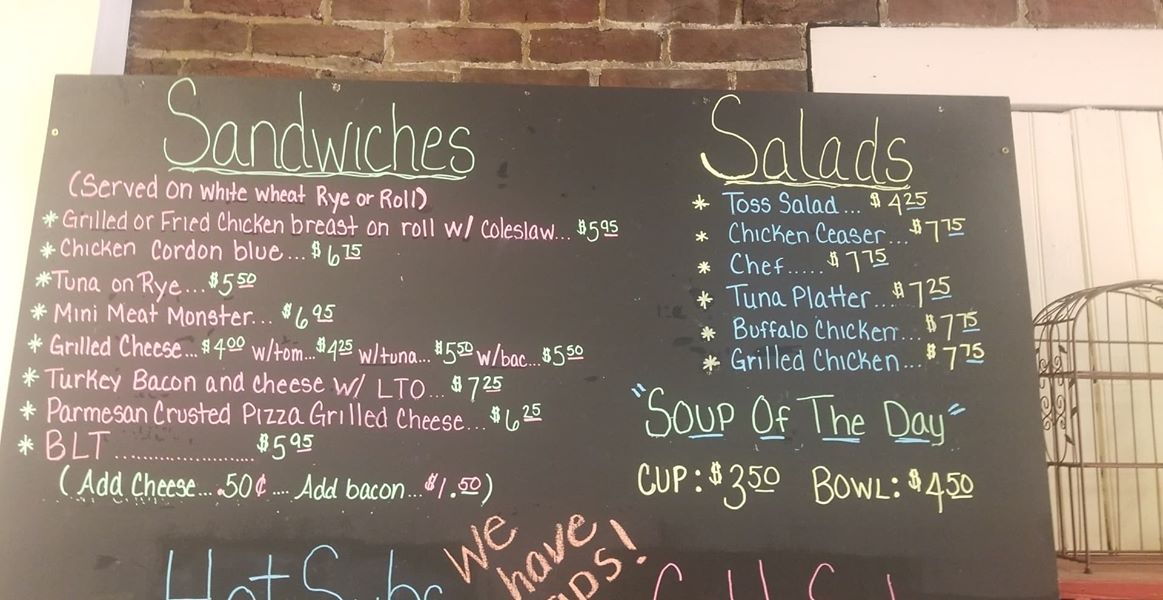 Sandwiches
(Served on white wheat Rye or Roll)
* Grilled or Fried Chicken breast on roll w/ Coleslaw... $5 95
* Chicken Cordon blue... $6 75
* Tuna on Rye... $5 50
* Mini Meat Monster... $6 95
* Grilled Cheese... $4 00 w/tom... $4 25 w/tuna... $5 50 w/bac... $5 50
* Turkey Bacon and cheese w/ LTO... $7 25
* Parmesan Crusted Pizza Grilled Cheese... $6 25
* BLT ...................... $5 95
(Add Cheese.... .50¢ .... Add bacon... $1.50)
Salads
* Toss Salad... $4 25
* Chicken Ceaser... $7 75
* Chef..... $7 75
* Tuna Platter... $7 25
* Buffalo Chicken... $7 75
* Grilled Chicken... $7 75
"Soup Of The Day"
CUP: $3 50 BOWL: $4 50
We
have
Hot Subs